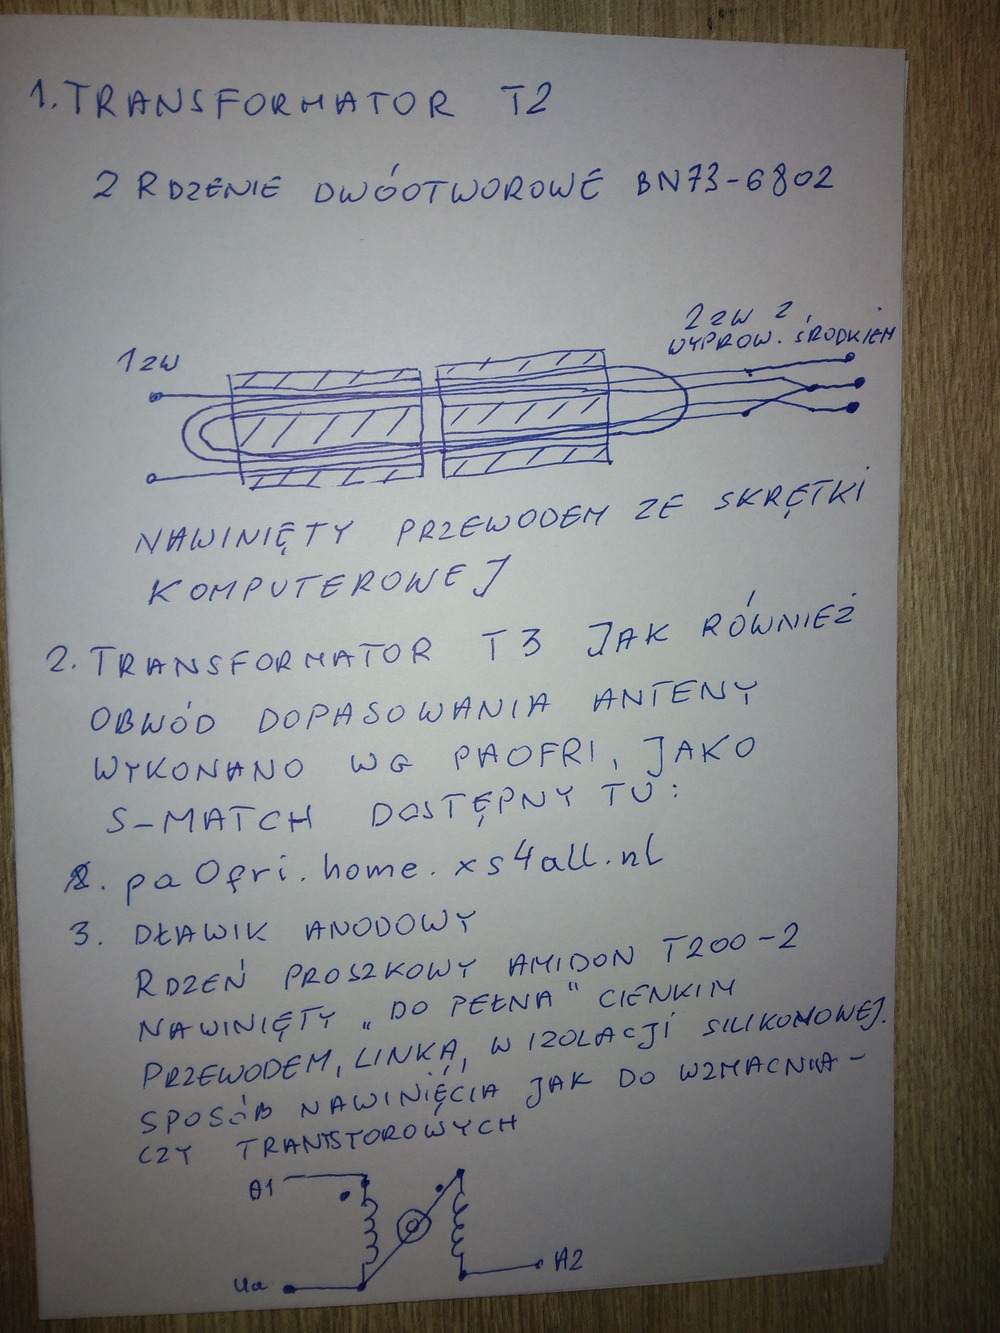 1. TRANSFORMATOR T2
2 RDZENIE DWÓOTWOROWE BN73-6802
1 ZW
2 ZW Z
WYPROW. ŚRODKIEM
NAWINIĘTY PRZEWODEM ZE SKRĘTKI
KOMPUTEROWEJ
2. TRANSFORMATOR T3 JAK RÓWNIEŻ
OBWÓD DOPASOWANIA ANTENY
WYKONANO WG PA0FRI, JAKO
S-MATCH DOSTĘPNY TU:
pa0fri.home.xs4all.nl
3. DŁAWIK ANODOWY
RDZEŃ PROSZKOWY AMIDON T200-2
NAWINIĘTY „DO PEŁNA" CIENKIM
PRZEWODEM, LINKĄ, W IZOLACJI SILIKONOWEJ.
SPOSÓB NAWINIĘCIA JAK DO WZMACNIA-
CZY TRANSTOROWYCH
A1
Ua
A2